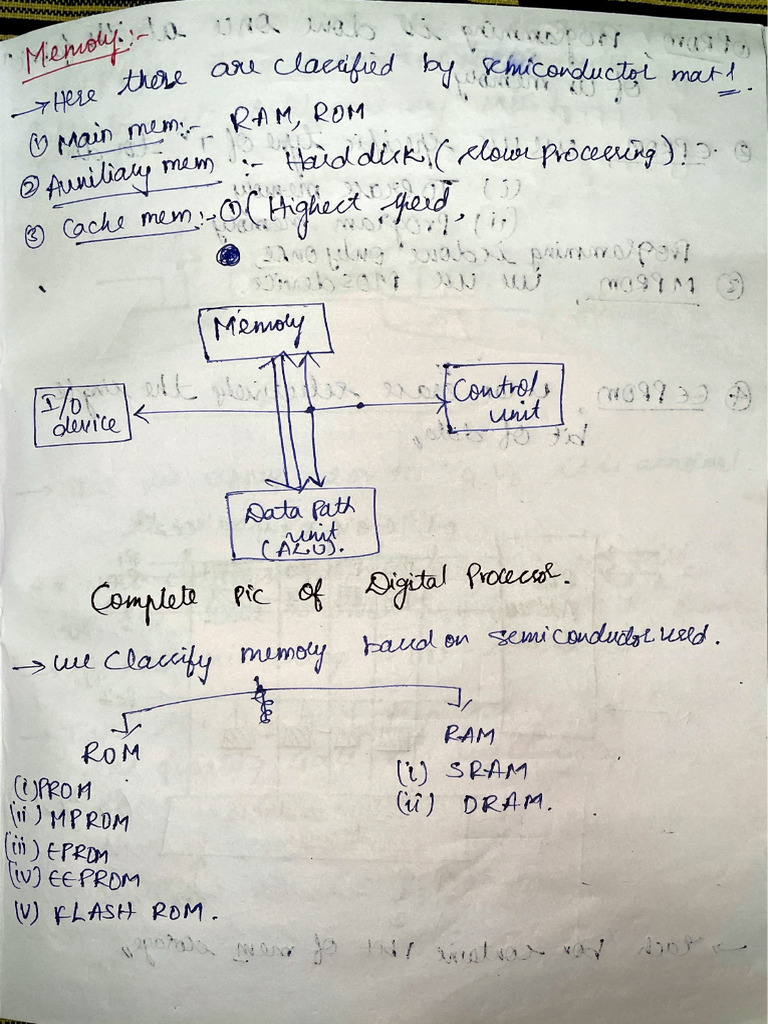 Memory:-
→ Here these are classified by semiconductor mat1.
① Main mem:- RAM, ROM
② Auxiliary mem :- Harddisk (slower processing).
③ Cache mem:- ① (Highest speed,
Memory
I/O
device
Control
unit
Data Path
unit
(ALU).
Complete Pic of Digital Processor.
→ we classify memory based on semiconductor used.
ROM
RAM
(i) PROM
(ii) MPROM
(iii) EPROM
(iv) EEPROM
(v) FLASH ROM.
(i) SRAM
(ii) DRAM.